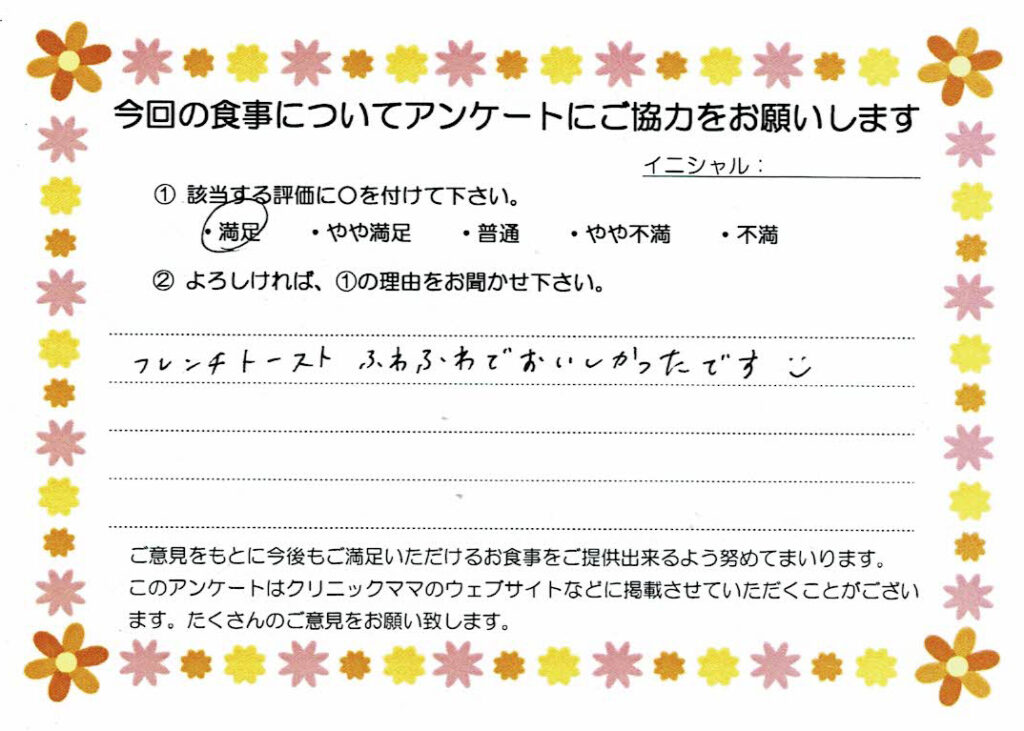 今回の食事についてアンケートにご協力をお願いします
イニシャル：
① 該当する評価に〇を付けて下さい。
・満足 ・やや満足 ・普通 ・やや不満 ・不満
② よろしければ、①の理由をお聞かせ下さい。
フレンチトースト ふわふわでおいしかったです
ご意見をもとに今後もご満足いただけるお食事をご提供出来るよう努めてまいります。
このアンケートはクリニックママのウェブサイトなどに掲載させていただくことがござい
ます。たくさんのご意見をお願い致します。